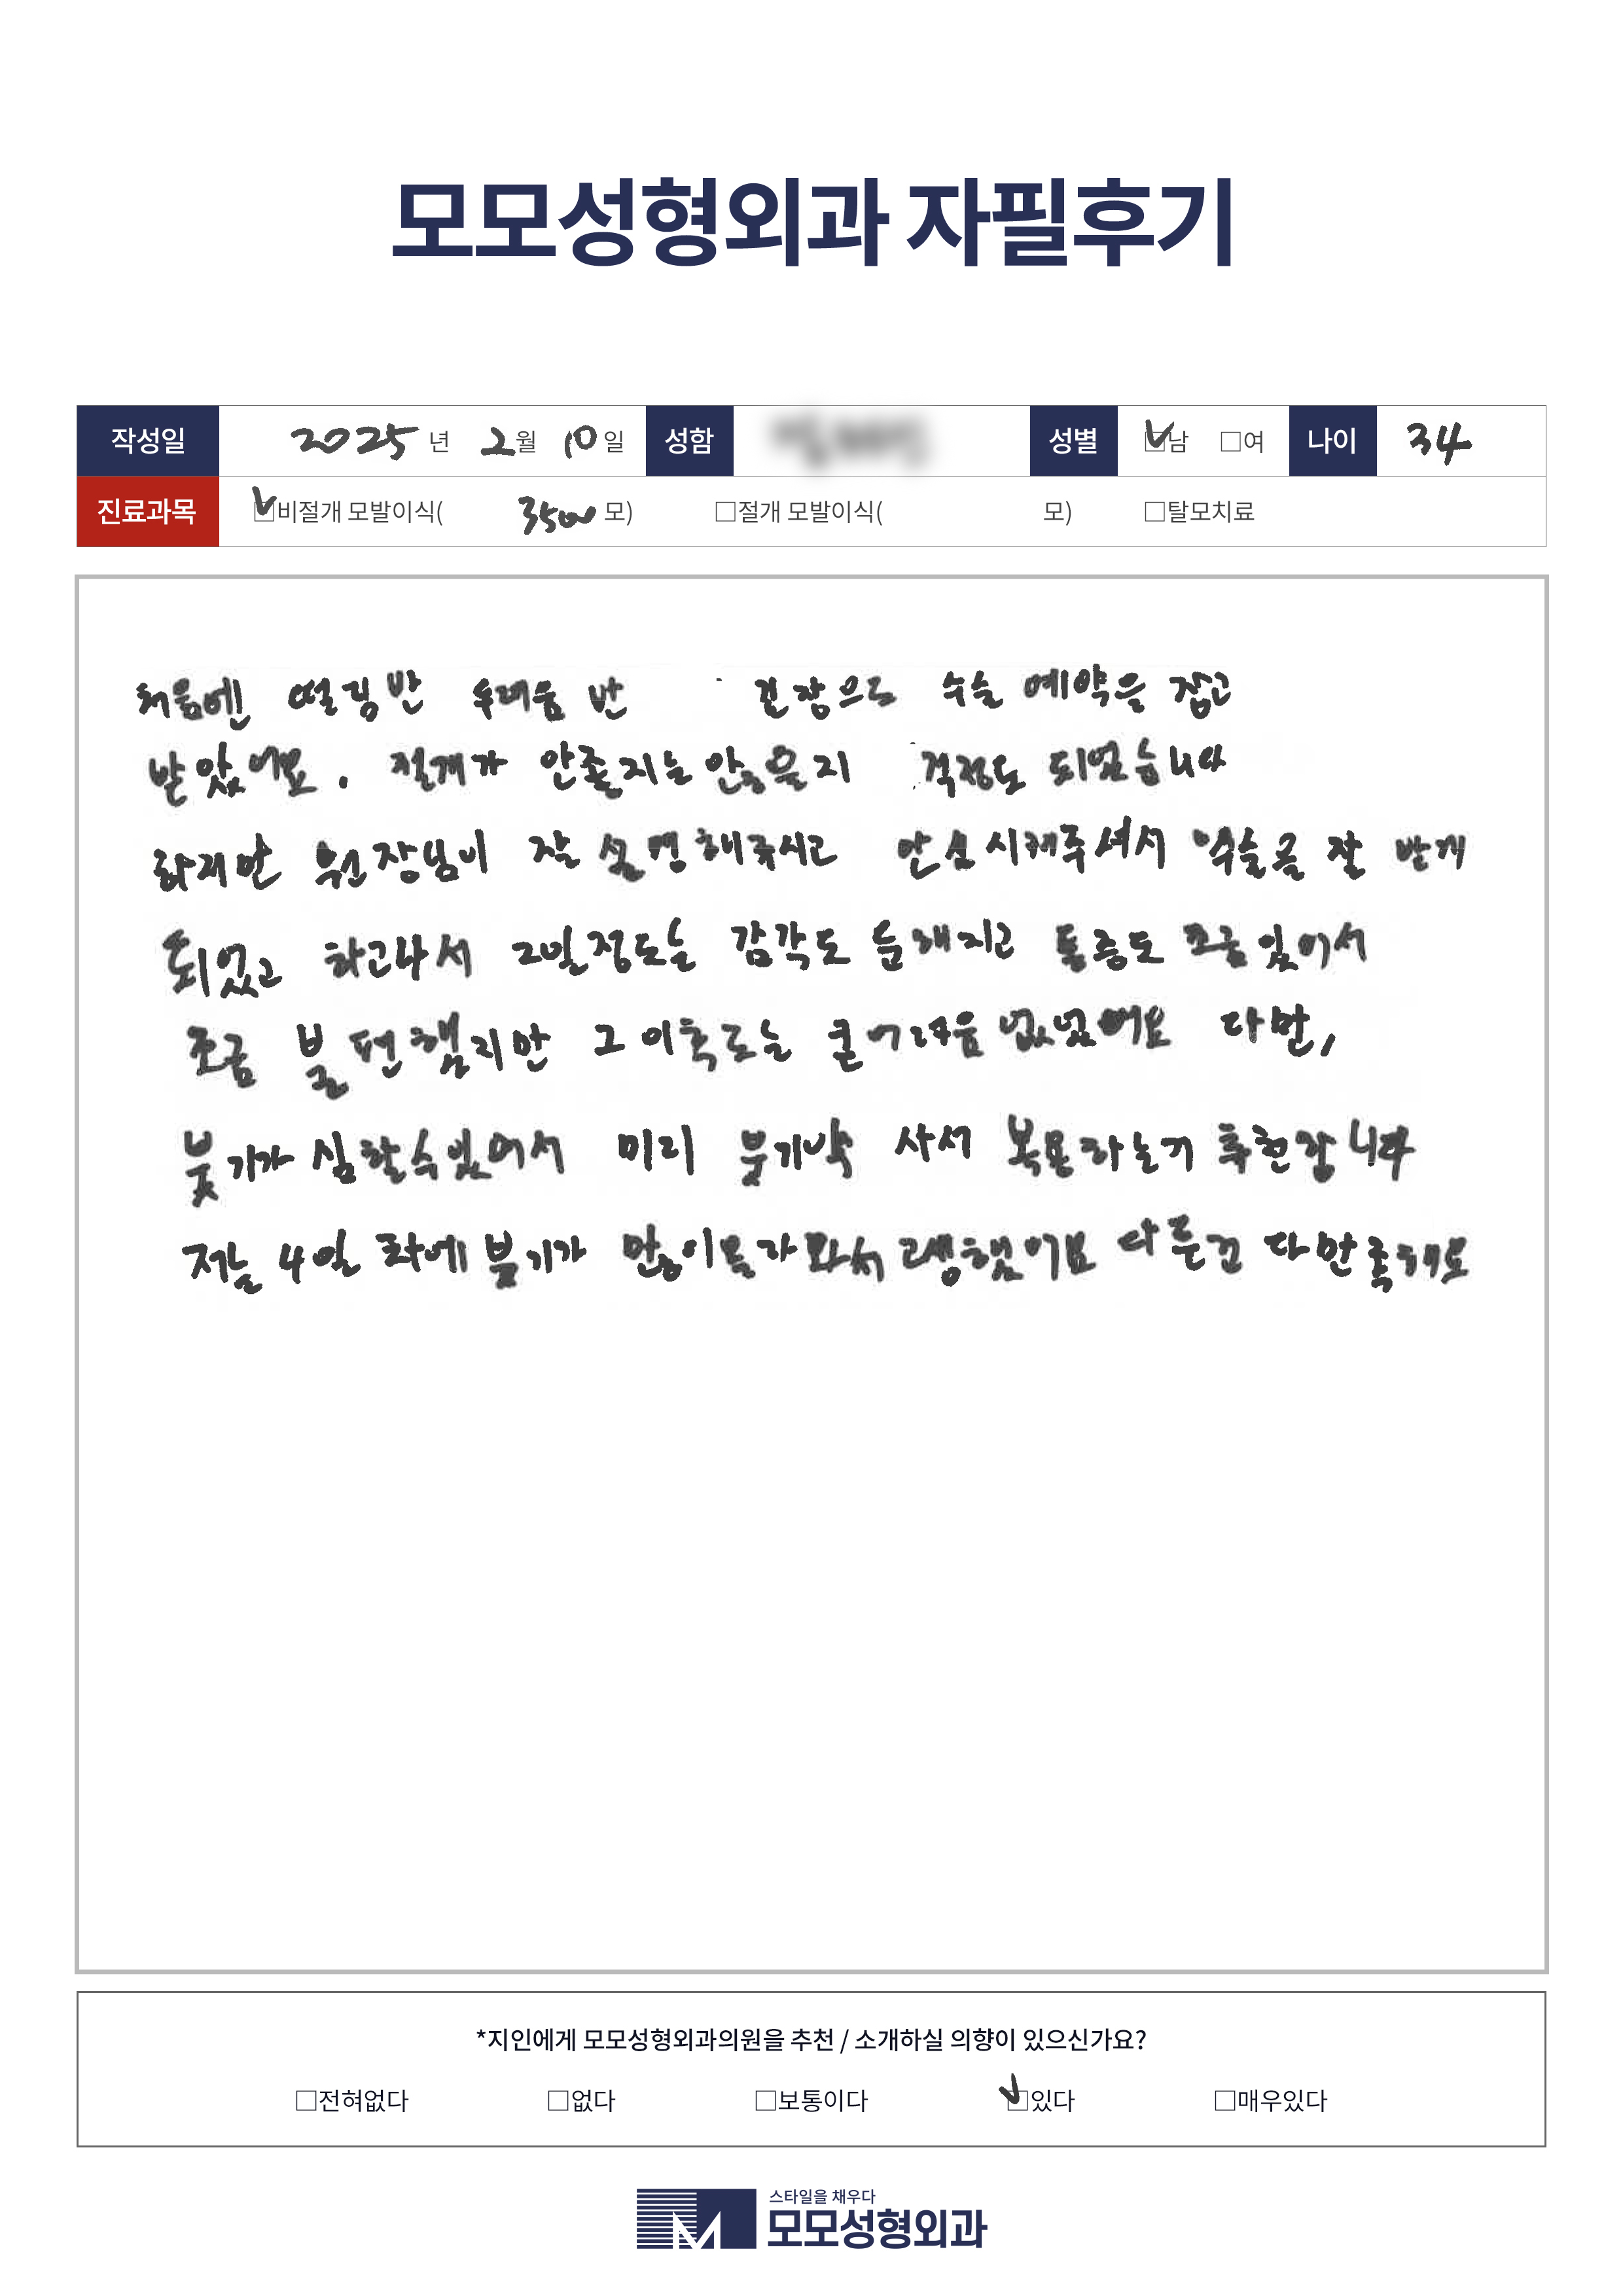 모모성형외과 자필후기
작성일 2025 년 2 월 10 일 성함 성별 ☑남 □여 나이 34
진료과목 ☑비절개 모발이식( 3500 모) □절개 모발이식( 모) □탈모치료
처음엔 떨림반 두려움 반 긴장으로 수술 예약을 잡고
받았어요. 절개가 안좋지는 않을지 걱정도 되었습니다
하지만 원장님이 잘 설명해주시고 안심시켜주셔서 수술을 잘 받게
되었고 하고나서 2일정도는 감각도 둔해지고 통증도 조금 있어서
조금 불편했지만 그 이후로는 큰 어려움 없었어요 다만,
붓기가 심할수있어서 미리 붓기약 사서 복용하는거 추천합니다
저는 4일 차에 붓기가 많이 올라와서 고생했어요 다른건 다 만족해요
*지인에게 모모성형외과의원을 추천 / 소개하실 의향이 있으신가요?
□전혀없다 □없다 □보통이다 ☑있다 □매우있다
스타일을 채우다
모모성형외과